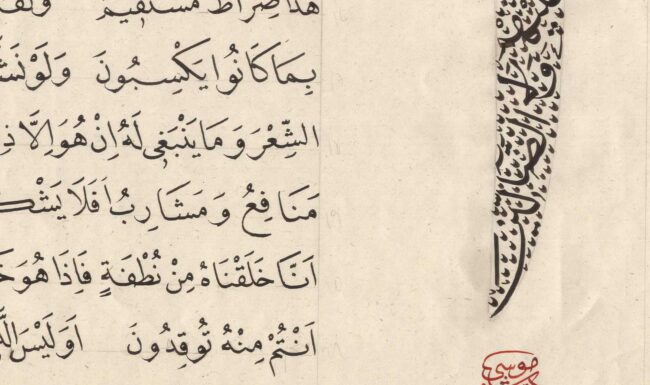 هذا صِرَاطٌ مُسْتَقِيمٌ
بِمَا كَانُوا يَكْسِبُونَ وَلَوْ
الشِّعْرَ وَمَا يَنْبَغِي لَهُ اِنْ هُوَ اِلَّا
مَنَافِعُ وَمَشَارِبُ اَفَلَا
اَنَّا خَلَقْنَاهُ مِنْ نُطْفَةٍ فَاِذَا هُوَ
اَنْتُمْ مِنْهُ تُوقِدُونَ اَوَلَيْسَ
ولا الضالين
موسى